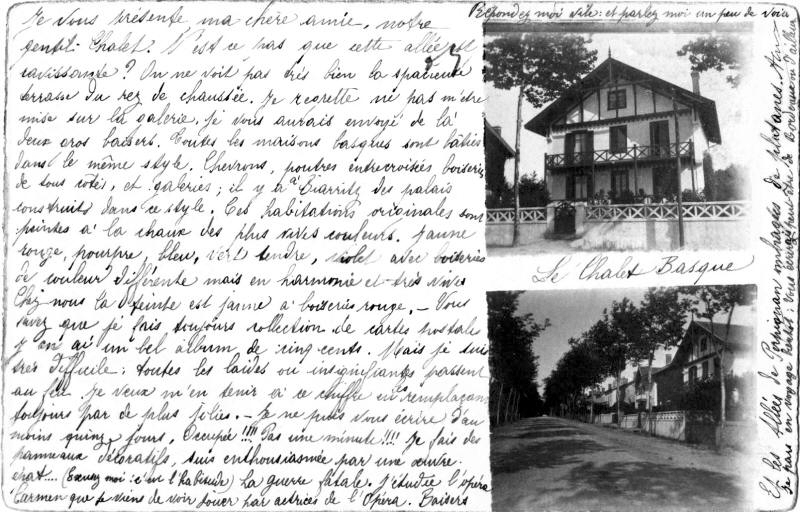 Répondez moi vite: et parlez moi un peu de vous
Je vous présente ma chère amie, notre
gentil Chalet. N'est ce pas que cette allée est
ravissante? On ne voit pas très bien la spacieuse
terrasse du rez de chaussée. Je regrette ne pas m'etre
mise sur la galerie. je vous aurais envoyé de là
deux gros baisers. Toutes les maisons basques sont bâties
dans le même style. Chevrons, poutres entrecroisées, boiseries
de tous côtés, et galeries; il y a à Biarritz des palais
construits dans ce style. Ces habitations originales sont
peintes à la chaux des plus vives couleurs. Jaune
rouge, pourpre, bleu, vert tendre, violet avec boiseries
de couleur différente mais en harmonie et très vives
Chez nous la teinte est jaune à boiseries rouge. - Vous
savez que je fais toujours collection de cartes postale
j'en ai un bel album de cinq cents. Mais je suis
très difficile: toutes les laides ou insignifiantes passent
au feu. Je veux m'en tenir à ce chiffre en les remplaçant
toujours par de plus jolies. - Je ne puis vous écrire d'au
moins quinze jours. Occupée!!!! Pas une minute!!! Je fais des
panneaux décoratifs, suis enthousiasmée par une œuvre
chat.... (Excusez moi c'est l'habitude) La guerre fatale. J'étudie l'opéra
Carmen que je viens de voir jouer par actrices de l'Opéra. Baisers
Le Chalet Basque
Et les allées de Perpignan ombragées de platanes.
Je pars en voyage bientôt: vous écrirez peut être de Bordeaux ou d'ailleurs